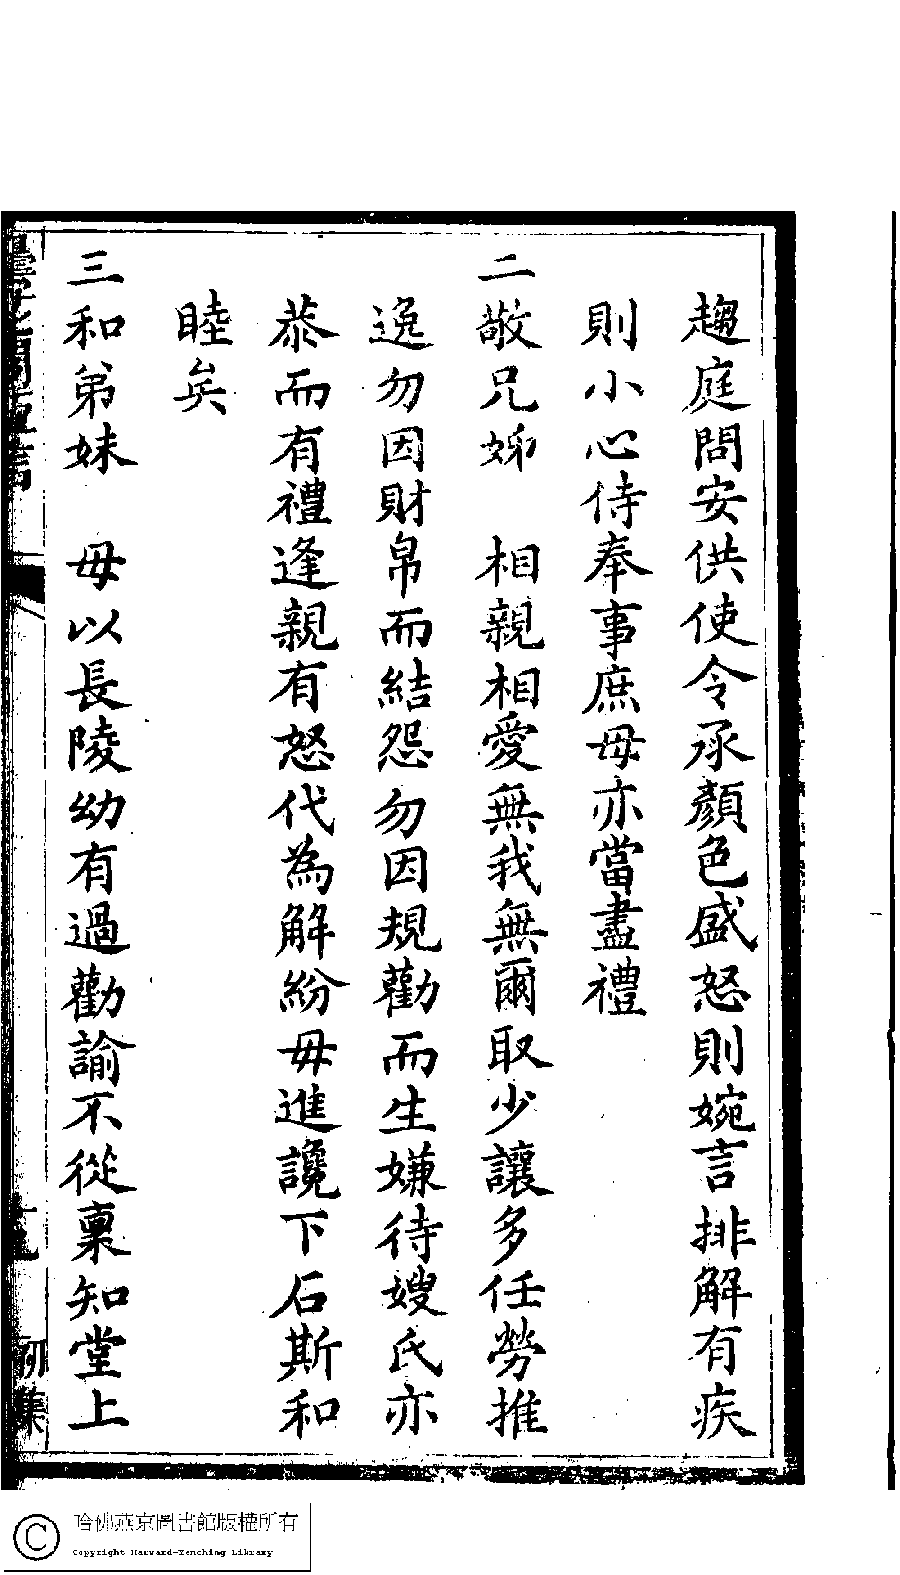 趨庭問安供使令承顏色盛怒則婉言排解有疾
則小心侍奉事庶母亦當盡禮
二敬兄姊　相親相愛無我無爾取少讓多任勞推
逸勿因財帛而結怨勿因規勸而生嫌待嫂氏亦
恭而有禮逢親有怒代為解紛毋進讒下石斯和
睦矣
三和弟妹　毋以長陵幼有過勸諭不從稟知堂上
初集
哈佛燕京圖書館版權所有
Copyright Harvard-Yenching Library